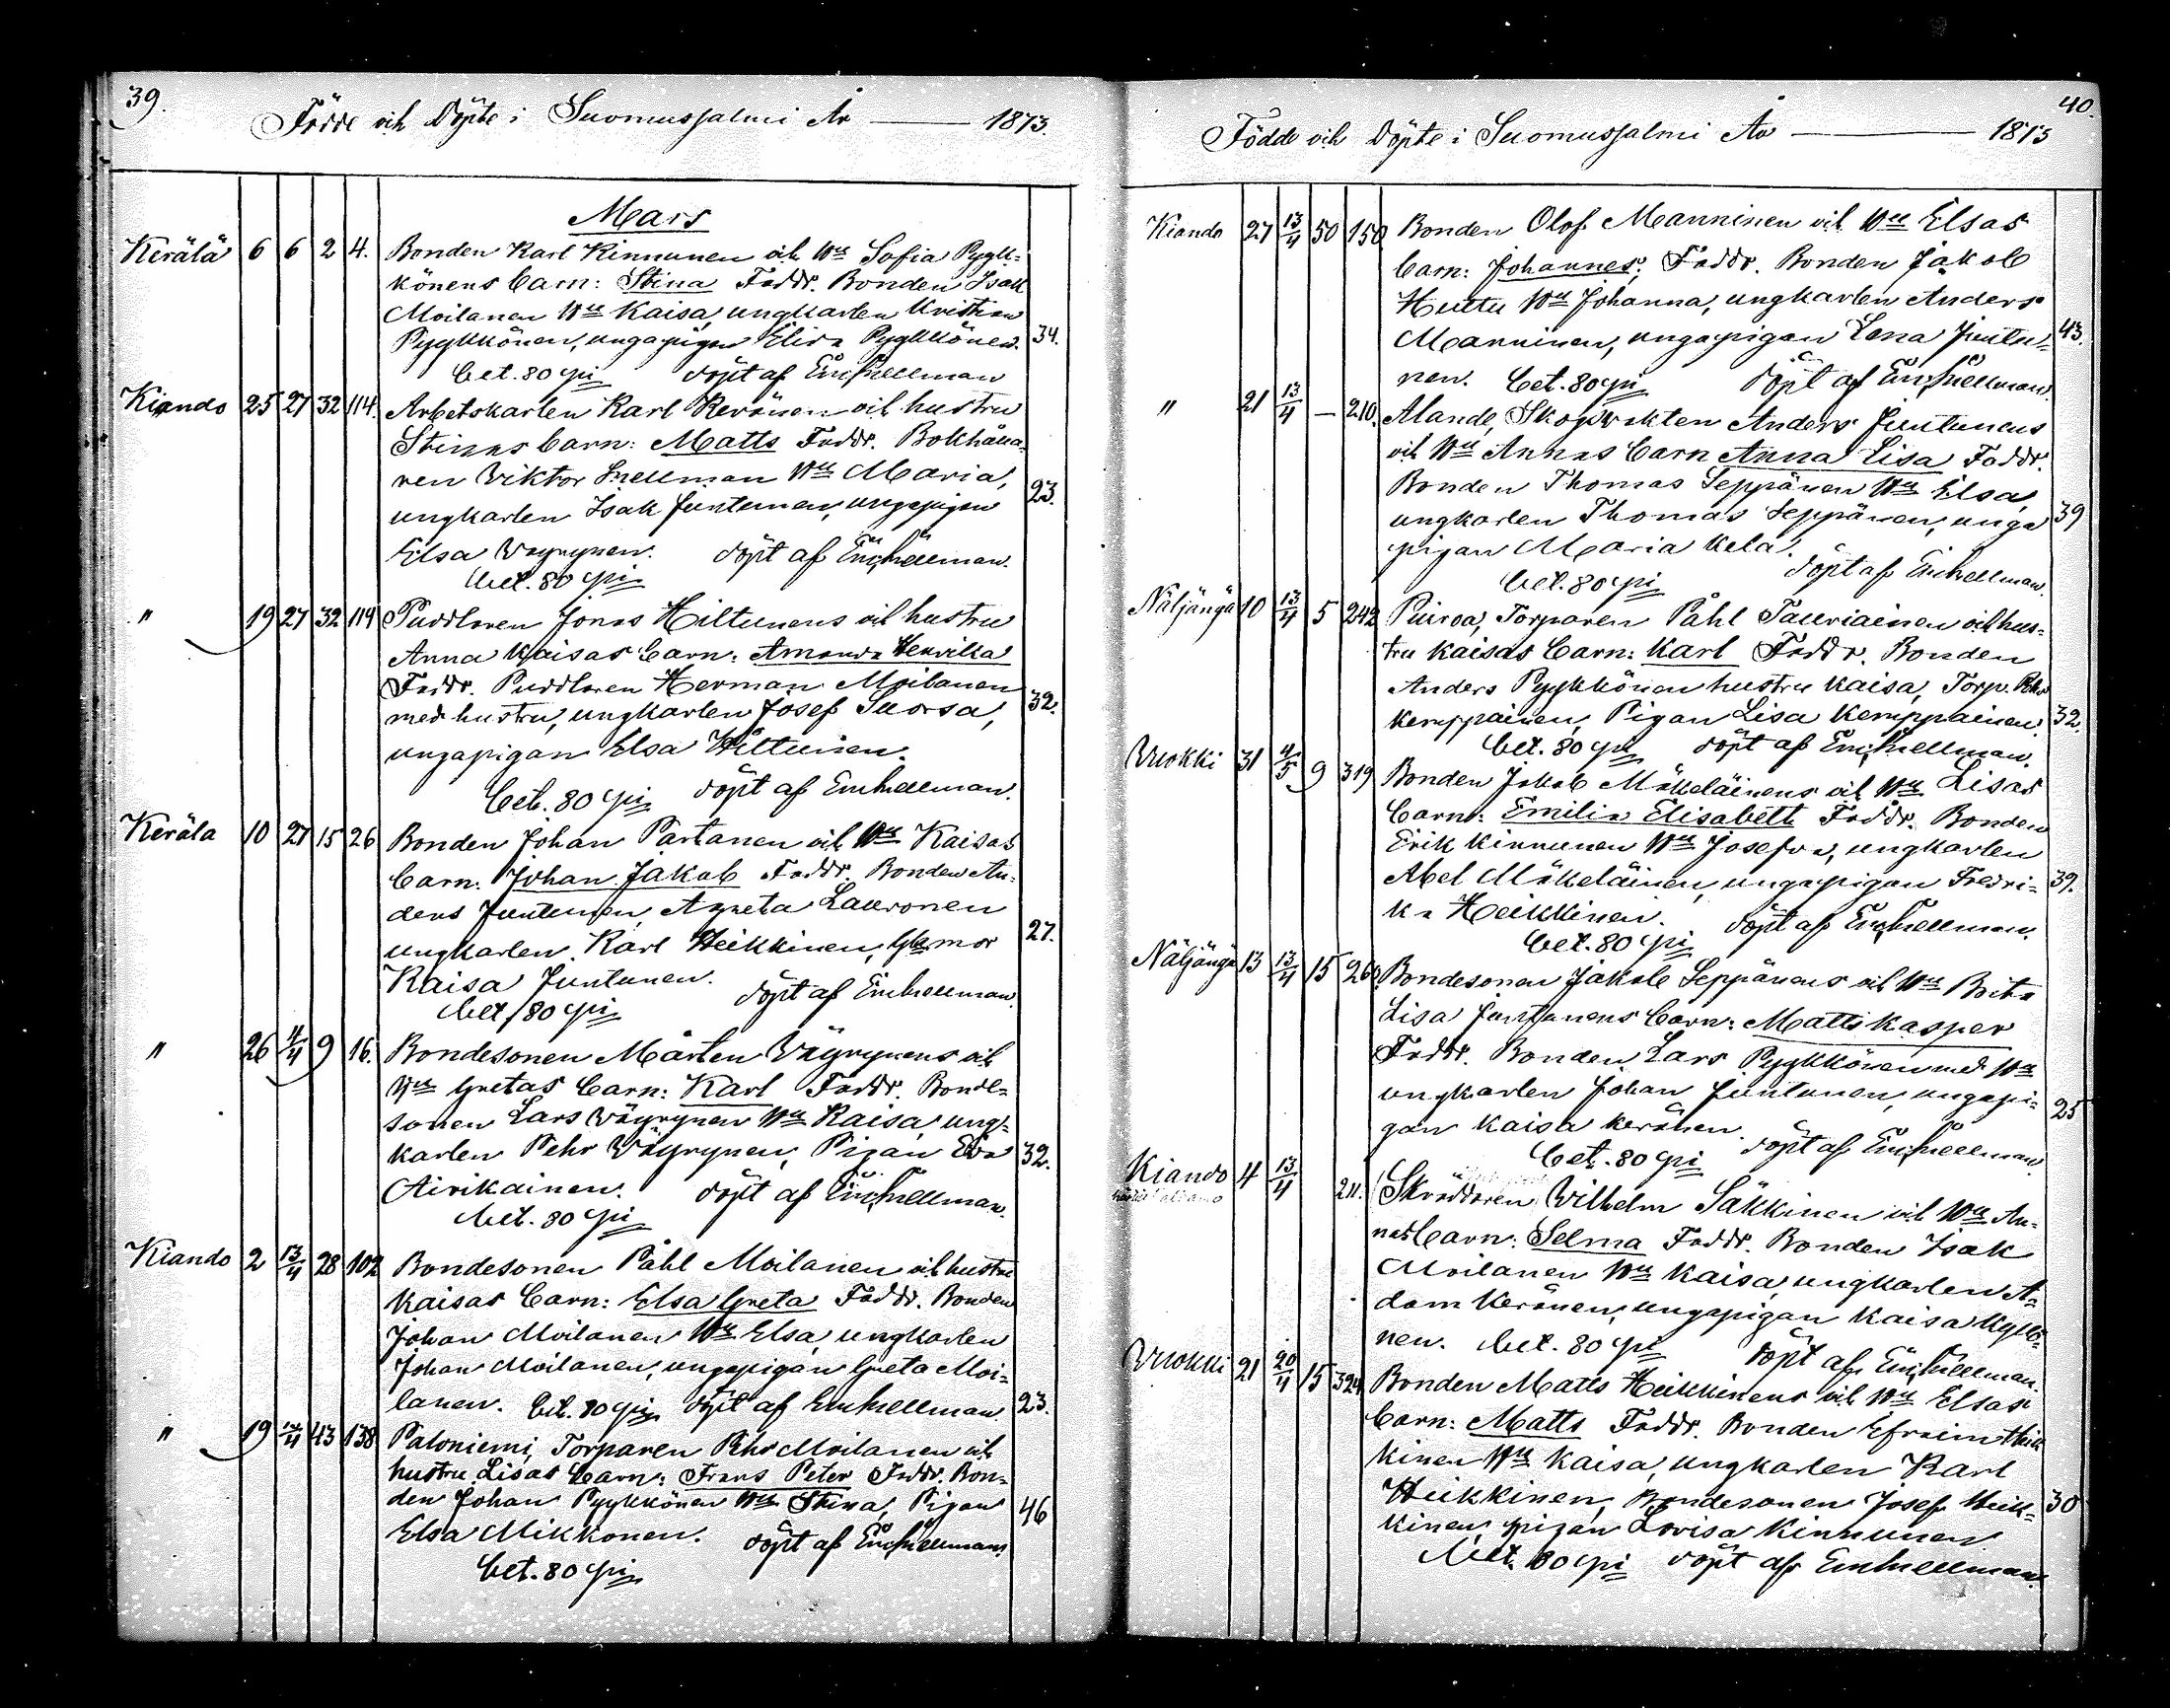 39.
Födde och Döpte i Suomussalmi År — 1873.
Mars
Kerälä 6 6 2 4. Bonden Karl Kinnunen och Hu Sofia Pyyk-
könens barn: Stina Faddr. Bonden Isak
Moilanen Hu Kaisa, ungkarlen Kristian
Pyykkönen, ungapigan Elisa Pyykkönen. 34.
bet. 80 pi döpt af Em Snellman
Kiando 25 27 32 114. Arbetskarlen Karl Keränen och hustru
Stinas barn: Matts Faddr. Bokhålla-
ren Viktor Snellman Hu Maria,
ungkarlen Isak Juntunen, ungapigan 23.
Elsa Väyrynen. döpt af Em Snellman.
bet. 80 pi
" 19 27 32 114 Puddlaren Jonas Hiltunens och hustru
Anna Kaisas barn: Amanda Henrika
Faddr. Puddlaren Herman Moilanen
med hustru, ungkarlen Josef Suorsa, 32.
ungapigan Elsa Hiltunen.
bet. 80 pi döpt af Em Snellman.
Kerälä 10 27 15 26 Bonden Johan Partanen och Hu Kaisas
barn: Johan Jakob Faddr. Bonden An-
ders Juntunen, Agneta Lauronen
ungkarlen Karl Heikkinen, mor 27.
Kaisa Juntunen. döpt af Em Snellman.
bet. 80 pi
" 26 4/4 9 16. Bondesonen Mårten Väyrynens och
Hu Gretas barn: Karl Faddr. Bonde-
sonen Lars Väyrynen Hu Kaisa, ung-
karlen Pehr Väyrynen, Pigan Eva 32.
Airikainen. döpt af Em Snellman.
bet. 80 pi
Kiando 2 13/4 28 102 Bondesonen Påhl Moilanen och hustru
Kaisas barn: Elsa Greta Faddr. Bonden
Johan Moilanen Hu Elsa, ungkarlen
Johan Moilanen, ungapigan Greta Moi-
lanen. bet. 80 pi döpt af Em Snellman. 23.
" 19 43 138 Paloniemi, Torparen Pehr Moilanen och
hustru Lisas barn: Frans Peter Faddr. Bon-
den Johan Pyykkönen Hu Stina, Pigan 46
Elsa Mikkonen. döpt af Em Snellman.
bet. 80 pi
40.
Födde och Döpte i Suomussalmi År — 1873
Kiando 27 13/4 50 150 Bonden Olof Manninen och Hu Elsas
barn: Johannes; Faddr. Bonden Jakob
Huttu Hu Johanna, ungkarlen Anders
Manninen, ungapigan Lena Juntu- 43.
nen. bet. 80 pi döpt af Em Snellman.
" 21 13/4 — 210. Alande, Skogvakten Anders Juntunens
och Hu Annas barn Anna Lisa Faddr.
Bonden Thomas Seppänen Hu Elsa,
ungkarlen Thomas Seppänen, unga 39
pigan Maria Kela. döpt af Em Snellman.
bet. 80 pi
Näljängä 10 13/4 5 242 Piiroa, Torparen Påhl Tauriainen och hus-
tru Kaisas barn: Karl Faddr. Bonden
Anders Pyykkönen hustru Kaisa, Torp. Pehr
Kemppainen, Pigan Lisa Kemppainen. 32.
bet. 80 pi döpt af Em Snellman.
Vuokki 31 4/5 9 319 Bonden Jakob Mäkeläinens och Hu Lisas
barn: Emilia Elisabeth Faddr. Bonden
Erik Kinnunen Hu Josefva, ungkarlen
Abel Mäkeläinen, ungapigan Fredri- 39.
ka Heikkinen. döpt af Em Snellman.
bet. 80 pi
Näljängä 13 13/4 15 260 Bondesonen Jakob Seppänens och Hu Brita
Lisa Juntunens barn: Matts Kasper
Faddr. Bonden Lars Pyykkönen med Hu
ungkarlen Johan Juntunen, ungapi- 25
gan Kaisa Keränen. döpt af Em Snellman.
bet. 80 pi
Kiando 4 13/4 211. Skräddaren Vilhelm Säkkinen och Hu An-
nas barn: Selma Faddr. Bonden Isak
Moilanen Hu Kaisa, ungkarlen A-
dam Keränen, ungapigan Kaisa Kyllö-
nen. bet. 80 pi döpt af Em Snellman.
Vuokki 21 20/4 15 324 Bonden Matts Heikkinens och Hu Elsas
barn: Matts Faddr. Bonden Efraim Heik-
kinen Hu Kaisa, ungkarlen Karl
Heikkinen, Bondesonen Josef Heik- 30
kinen, pigan Lovisa Kinnunen
bet. 80 pi döpt af Em Snellman.